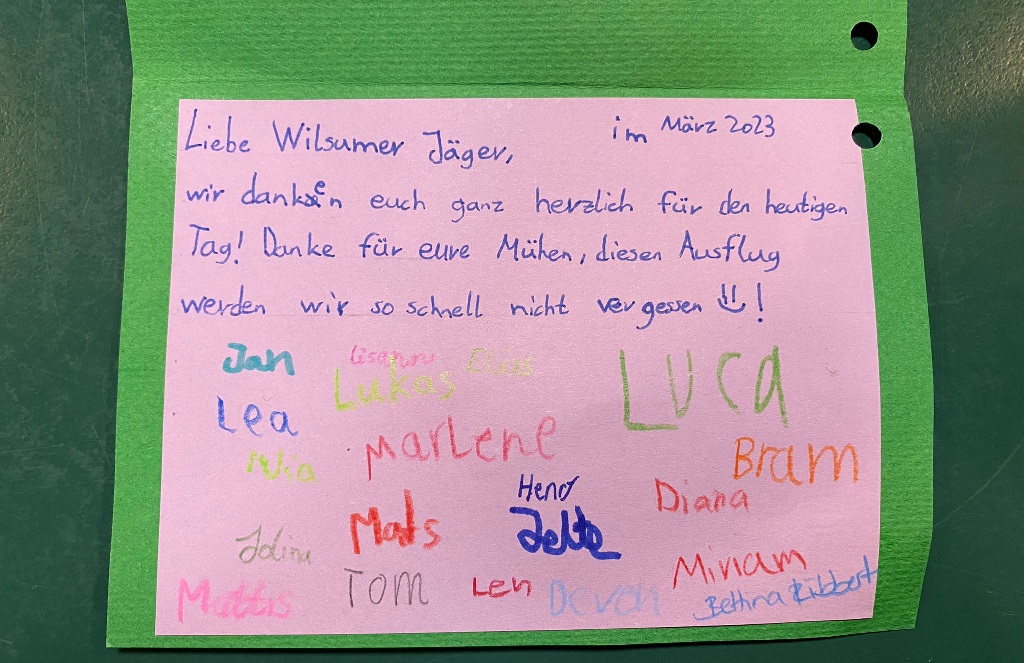 Liebe Wilsumer Jäger, im März 2023
wir danken euch ganz herzlich für den heutigen
Tag! Danke für eure Mühen, diesen Ausflug
werden wir so schnell nicht vergessen !
Jan
Lukas
LUCA
Lea
Marlene
Nia
Bram
Diana
Mats
Jelte
Miriam
Mattis
TOM
Len
Devon
Bettina